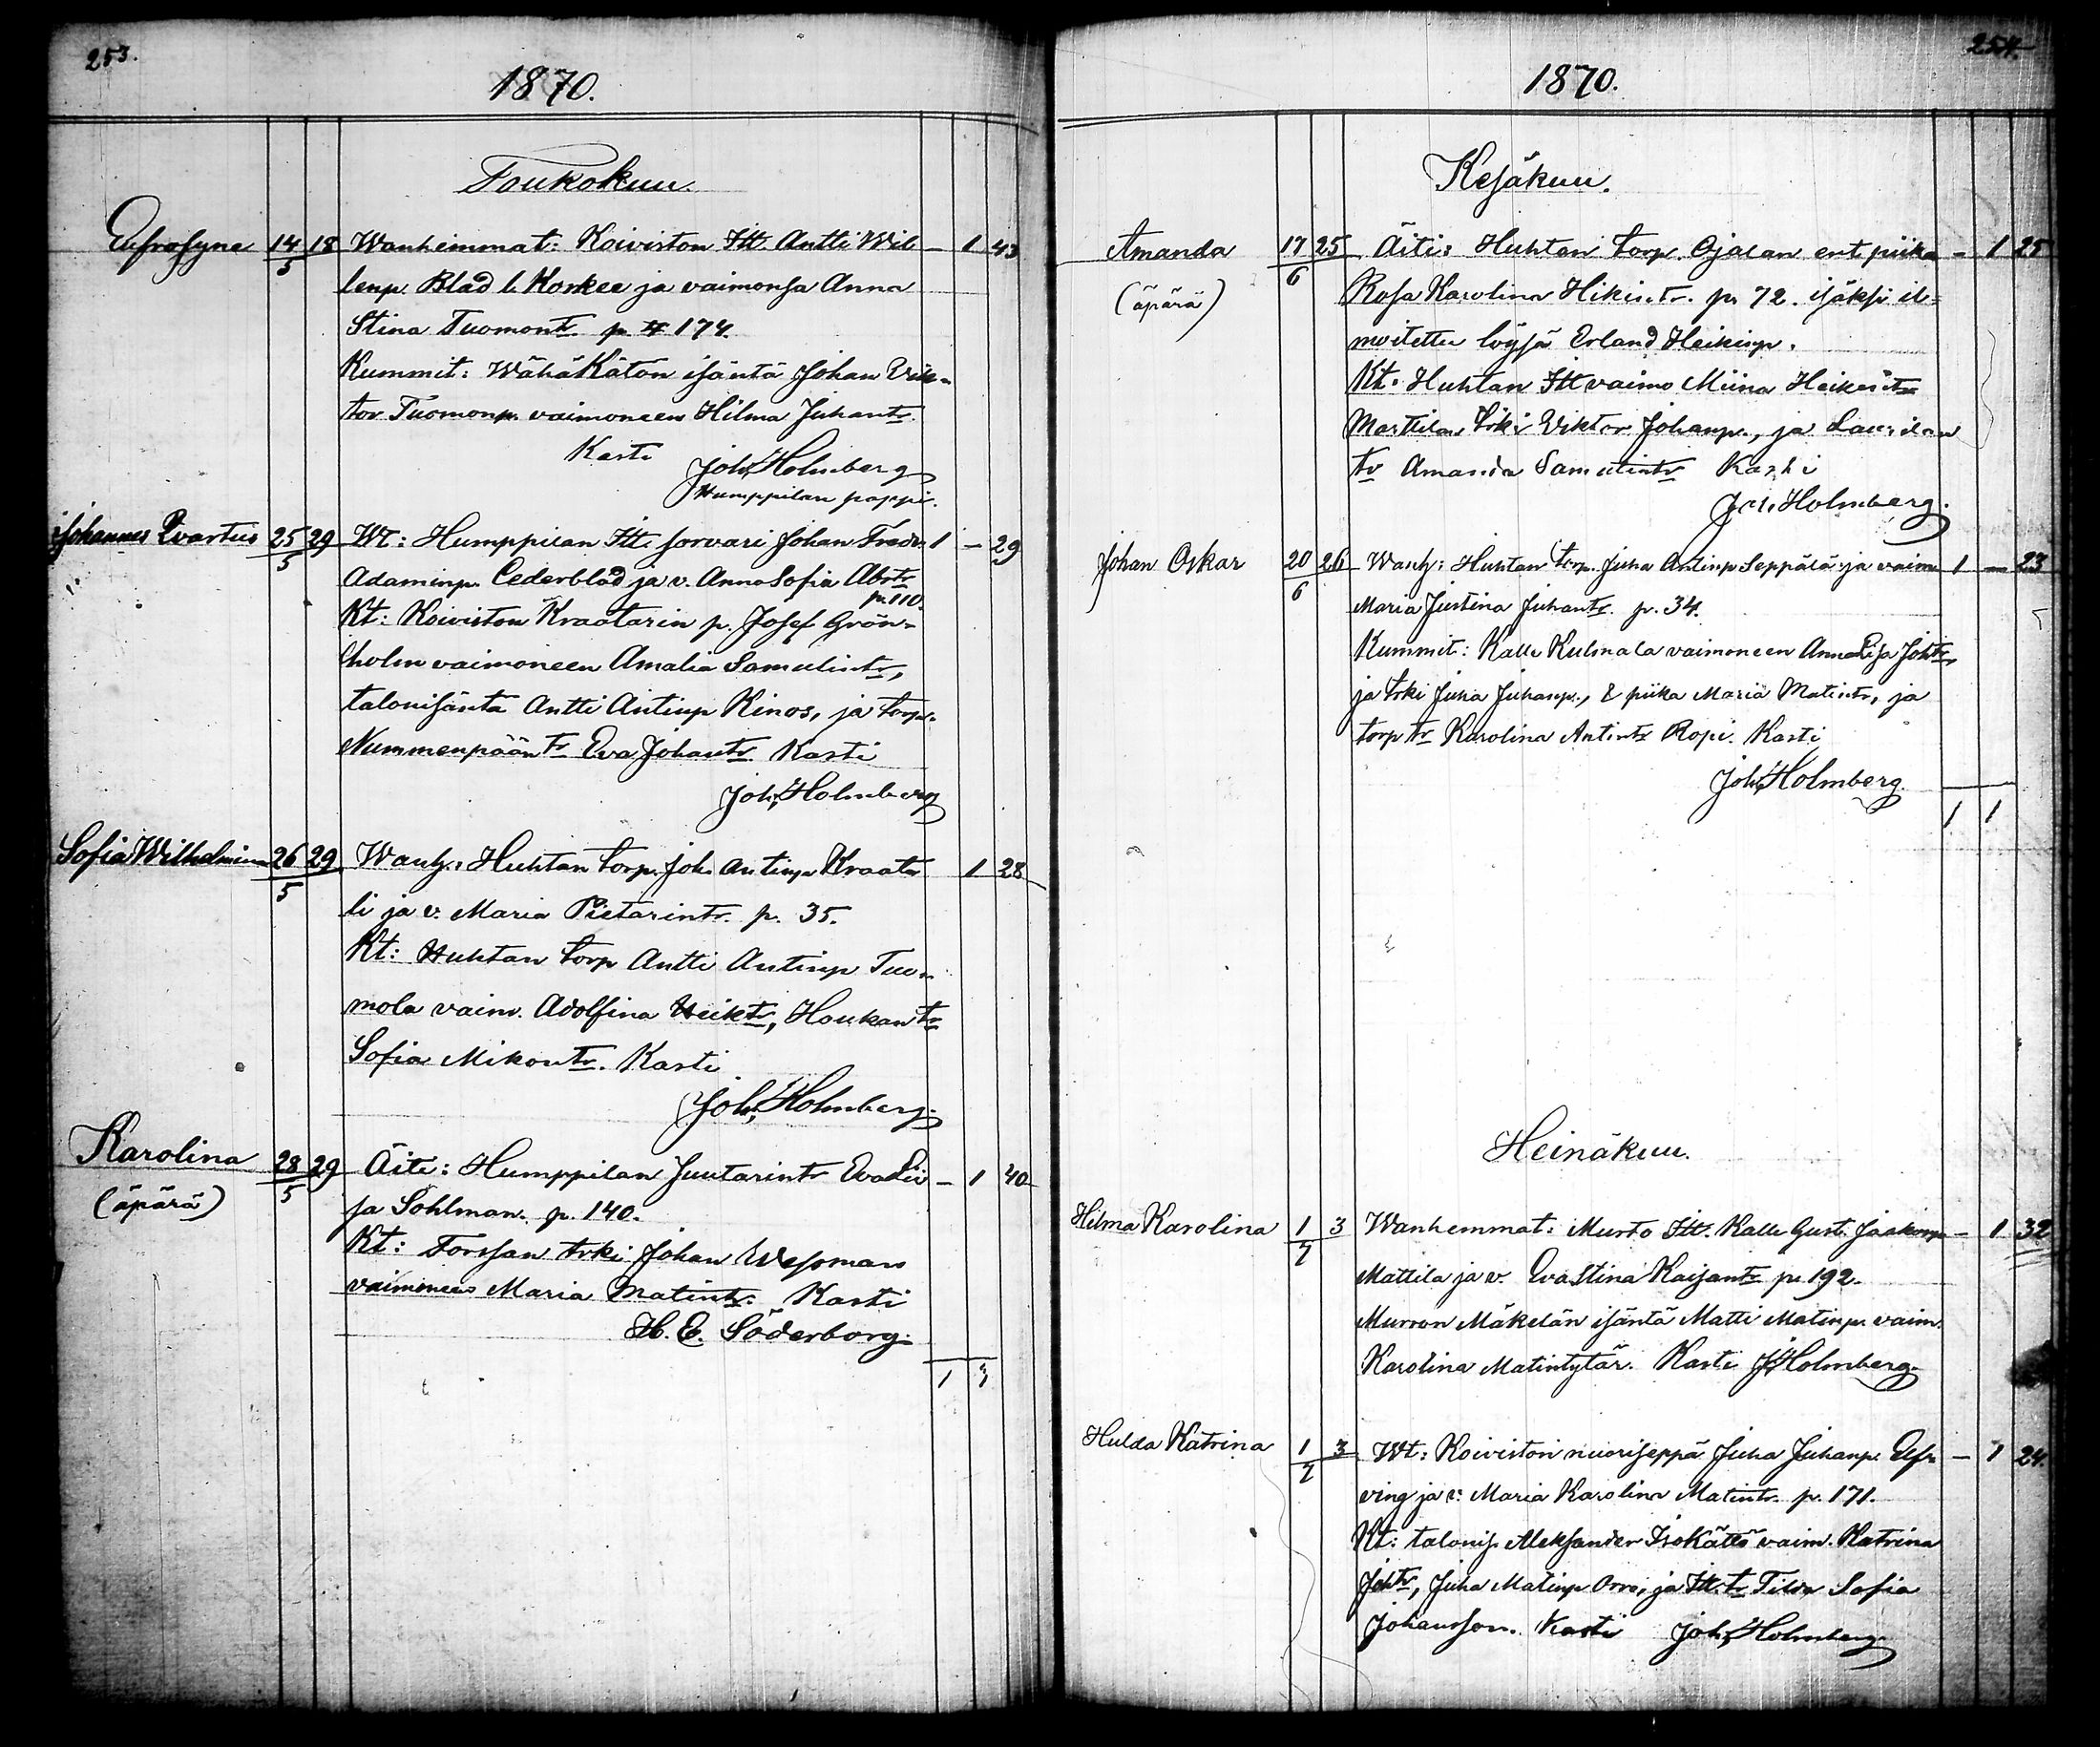 253.
1870.
Toukokuu.
Eufrosyne 14/5 18 Wanhemmat: Koiviston Itt. Antti Wil- — 1 43
lenp. Blad l. Korkee ja vaimonsa Anna
Stina Tuomontr. p. 174.
Kummit: WähäKätön isäntä Johan Vik-
tor Tuomonp. vaimoneen Hilma Juhantr.
Kasti Joh. Holmberg
Humppilan pappi.
Johannes Evartus 25/5 29 Wt: Humppilan Itt. sorvari Johan Fredr. 1 — 29
Adaminp. Cederblad ja v. Anna Sofia Abrtr.
p. 110.
Kt: Koiviston Kraatarin p. Josef Grön-
holm vaimoneen Amalia Samulintr,
talonisäntä Antti Antinp Kinos, ja torp.
Nummenpään tr Eva Johantr. Kasti
Joh. Holmberg
Sofia Wilhelmina 26/5 29 Wanh.: Huhtan torp. Joh. Antinp Kraata 1 28
li ja v. Maria Pietarintr. p. 35.
Kt: Huhtan torp Antti Antinp Tuo-
mola vaim. Adolfina Heiktr, Houkan tr
Sofia Mikontr. Kasti
Joh. Holmberg.
Karolina 28/5 29 Äiti: Humppilan Juutarintr Eva Lii — 1 40
(äpärä)
sa Sohlman. p. 140.
Kt: Forssan trki Johan Wessman
vaimoneen Maria Matintr. Kasti
H. E. Söderborg.
1 3
254.
1870.
Kesäkuu.
Amanda 17/6 25 Äiti: Huhtan torp. Ojalan ent piika — 1 25
(äpärä)
Rosa Karolina Hikintr. p. 72. isäksi il-
moitettu löysä Erland Heikinp.
Kt. Huhtan Itt vaimo Miina Heikintr
Marttilan trki Viktor Johanp., ja Laurilan
tr Amanda Samulintr Kasti
Joh. Holmberg.
Johan Oskar 20/6 26 Wanh: Huhtan torp. Juha Antinp Seppälä ja vaim 1 — 23
Maria Justina Juhantr. p. 34.
Kummit: Kalle Kulmala vaimoneen Anna Lisa Johtr,
ja trki Juha Juhanp., & piika Maria Matintr, ja
torp tr Karolina Antintr Ropi. Kasti
Joh. Holmberg.
1 1
Heinäkuu.
Hilma Karolina 1/7 3 Wanhemmat: Murto Itt. Kalle Gust. Jaakonp — 1 32
Mattila ja v. Eva Stina Kaisantr p. 192.
Murron Mäkelän isäntä Matti Matinp. vaim.
Karolina Matintytär. Kasti J. Holmberg.
Hulda Katrina 1/7 3 Wt: Koiviston nuoriseppä Juha Juhanp. — 1 24.
ving ja v: Maria Karolina Matintr. p. 171.
Kt: talonis. Aleksander IsoKättö vaim. Katrina
Johtr, Juha Matinp Orro, ja Itt. tr Tilda Sofia
Johansson. Kasti Joh. Holmberg.